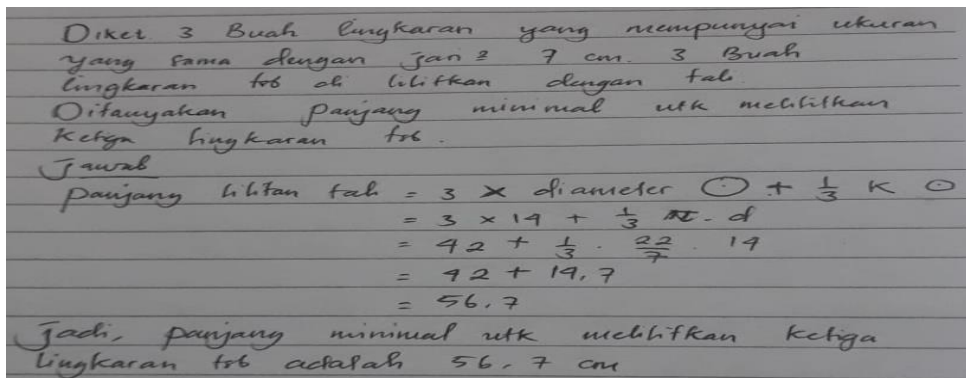 Diket 3 Buah lingkaran yang mempunyai ukuran
yang sama dengan jari² 7 cm. 3 Buah
lingkaran tsb di lilitkan dengan tali.
Ditanyakan panjang minimal utk melilitkan
Ketiga lingkaran tsb.
Jawab
panjang lilitan tali = 3 x diameter ⊙ + 1/3 K ⊙
= 3 x 14 + 1/3 π . d
= 42 + 1/3 . 22/7 . 14
= 42 + 14,7
= 56,7
Jadi, panjang minimal utk melilitkan ketiga
lingkaran tsb adalah 56,7 cm